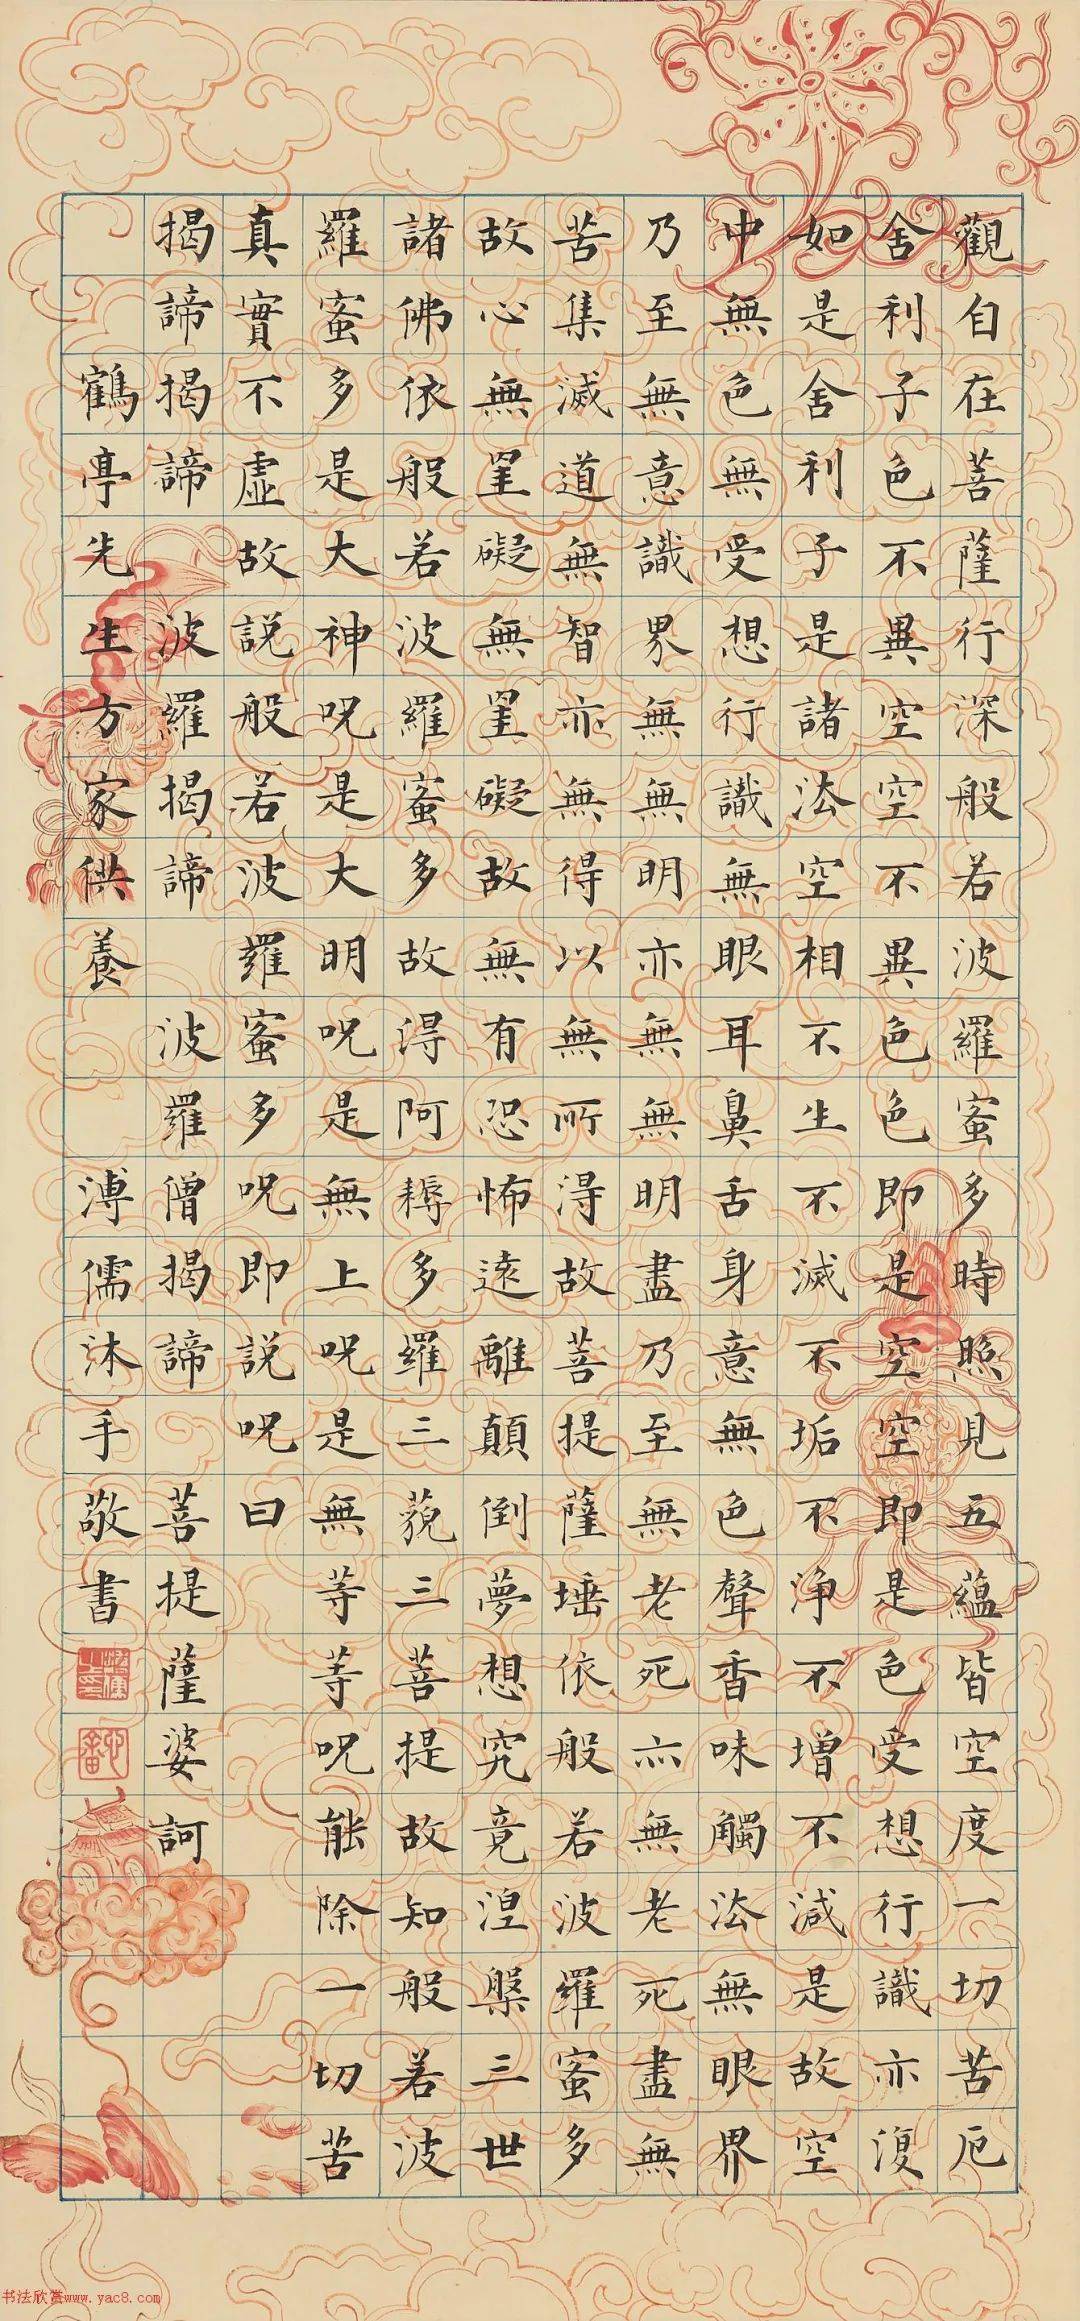 觀自在菩薩行深般若波羅蜜多時照見五蘊皆空度一切苦厄
舍利子色不異空空不異色色即是空空即是色受想行識亦復
如是舍利子是諸法空相不生不滅不垢不淨不增不減是故空
中無色無受想行識無眼耳鼻舌身意無色聲香味觸法無眼界
乃至無意識界無無明亦無無明盡乃至無老死亦無老死盡無
苦集滅道無智亦無得以無所得故菩提薩埵依般若波羅蜜多
故心無罣礙無罣礙故無有恐怖遠離顛倒夢想究竟涅槃三世
諸佛依般若波羅蜜多故得阿耨多羅三藐三菩提故知般若波
羅蜜多是大神呪是大明呪是無上呪是無等等呪能除一切苦
真實不虛故說般若波羅蜜多呪即說呪曰
揭諦揭諦 波羅揭諦 波羅僧揭諦 菩提薩婆訶
鶴亭先生方家供養 溥儒沐手敬書
书法欣赏www.yac8.com